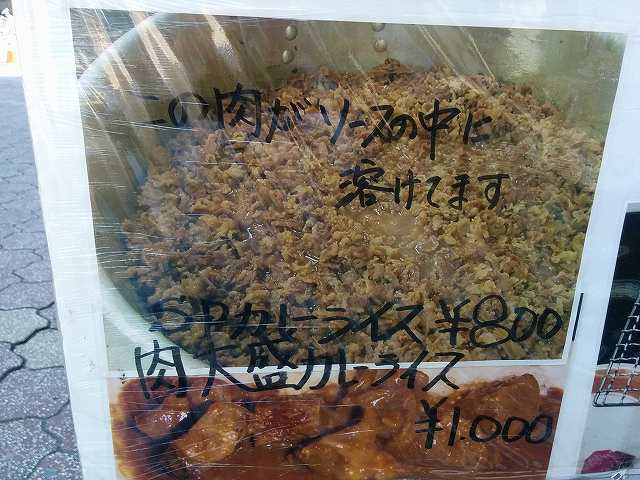 この肉がソースの中に
溶けてます
SPカレーライス ¥800
肉大盛カレーライス
¥1.000